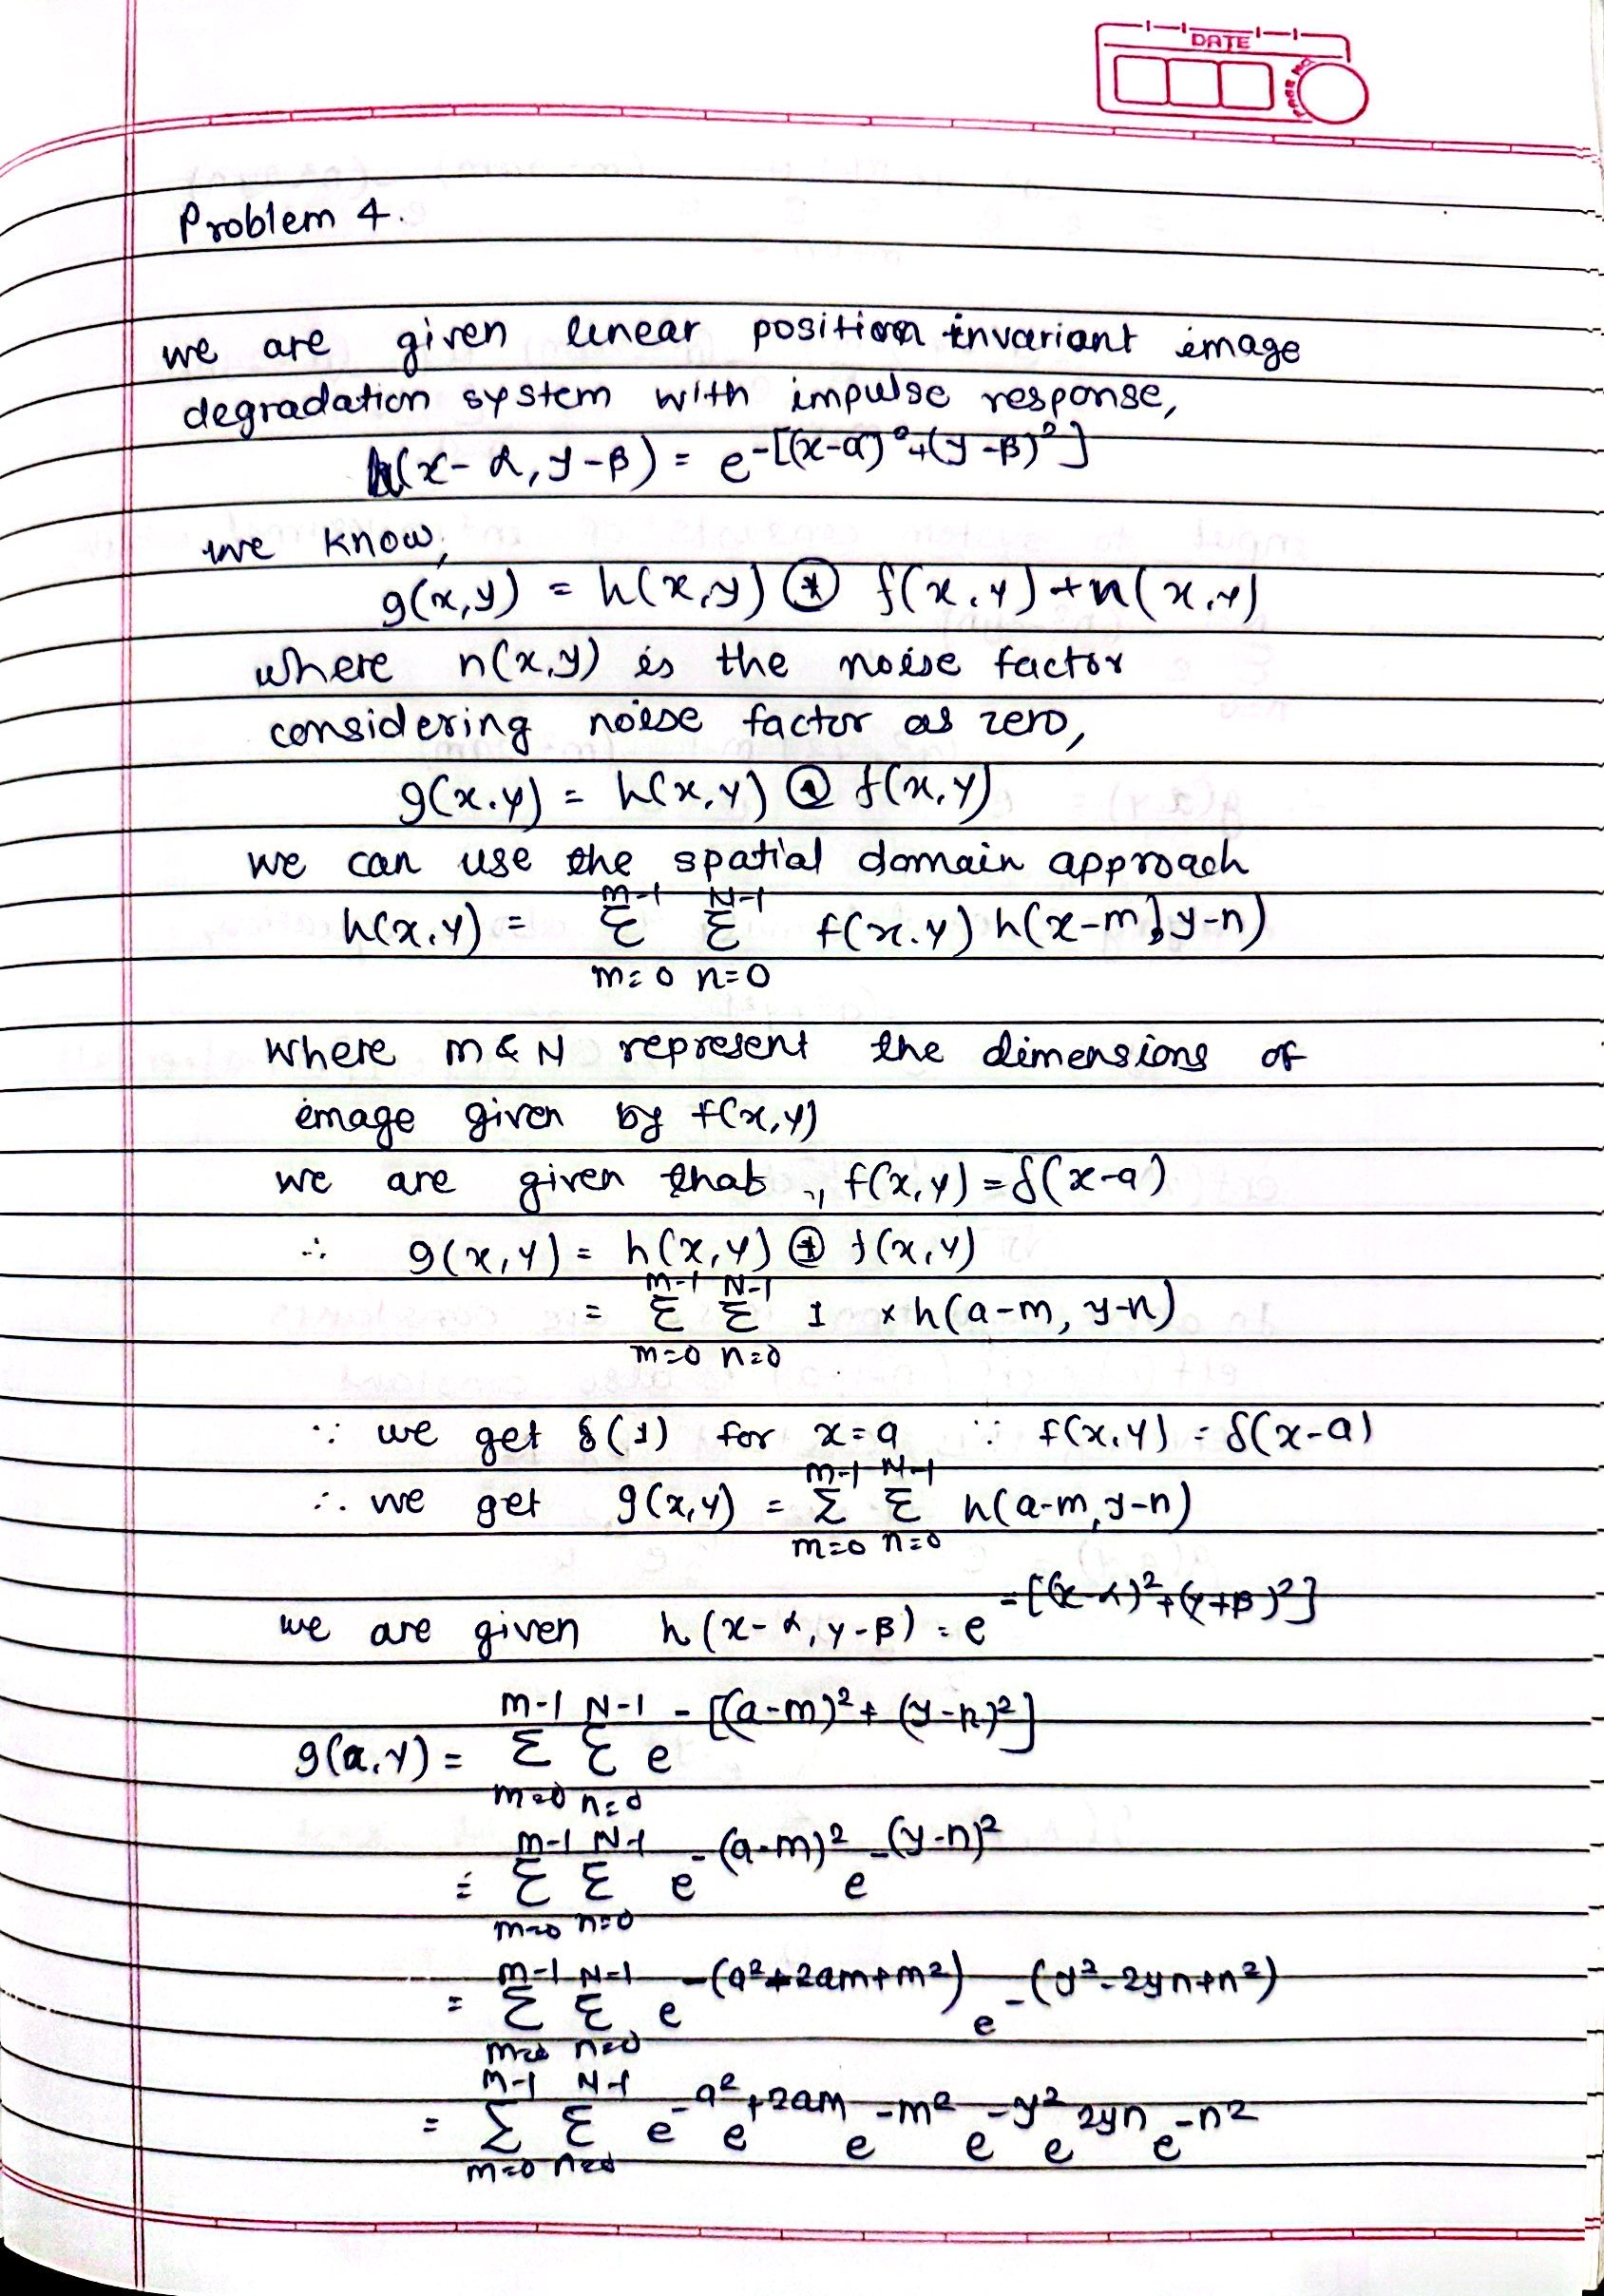 DATE
PAGE NO.
Problem 4.
we are given linear position invariant image
degradation system with impulse response,
h(x-α, y-β) = e^-[(x-α)²+(y-β)²]
we know,
g(x,y) = h(x,y) ⊛ f(x,y) + n(x,y)
where n(x,y) is the noise factor
considering noise factor as zero,
g(x,y) = h(x,y) ⊛ f(x,y)
we can use the spatial domain approach
h(x,y) = Σ_{m=0}^{M-1} Σ_{n=0}^{N-1} f(x,y) h(x-m, y-n)
where M & N represent the dimensions of
image given by f(x,y)
we are given that, f(x,y) = δ(x-a)
∴ g(x,y) = h(x,y) ⊛ f(x,y)
= Σ_{m=0}^{M-1} Σ_{n=0}^{N-1} 1 × h(a-m, y-n)
∵ we get δ(1) for x=a ∵ f(x,y) = δ(x-a)
∴ we get g(x,y) = Σ_{m=0}^{M-1} Σ_{n=0}^{N-1} h(a-m, y-n)
we are given h(x-α, y-β) = e^-[(x-α)²+(y+β)²]
g(a,y) = Σ_{m=0}^{M-1} Σ_{n=0}^{N-1} e^-[(a-m)²+(y-n)²]
= Σ_{m=0}^{M-1} Σ_{n=0}^{N-1} e^-(a-m)² e^-(y-n)²
= Σ_{m=0}^{M-1} Σ_{n=0}^{N-1} e^-(a²-2am+m²) e^-(y²-2yn+n²)
= Σ_{m=0}^{M-1} Σ_{n=0}^{N-1} e^-a² e^+2am e^-m² e^-y² e^2yn e^-n²